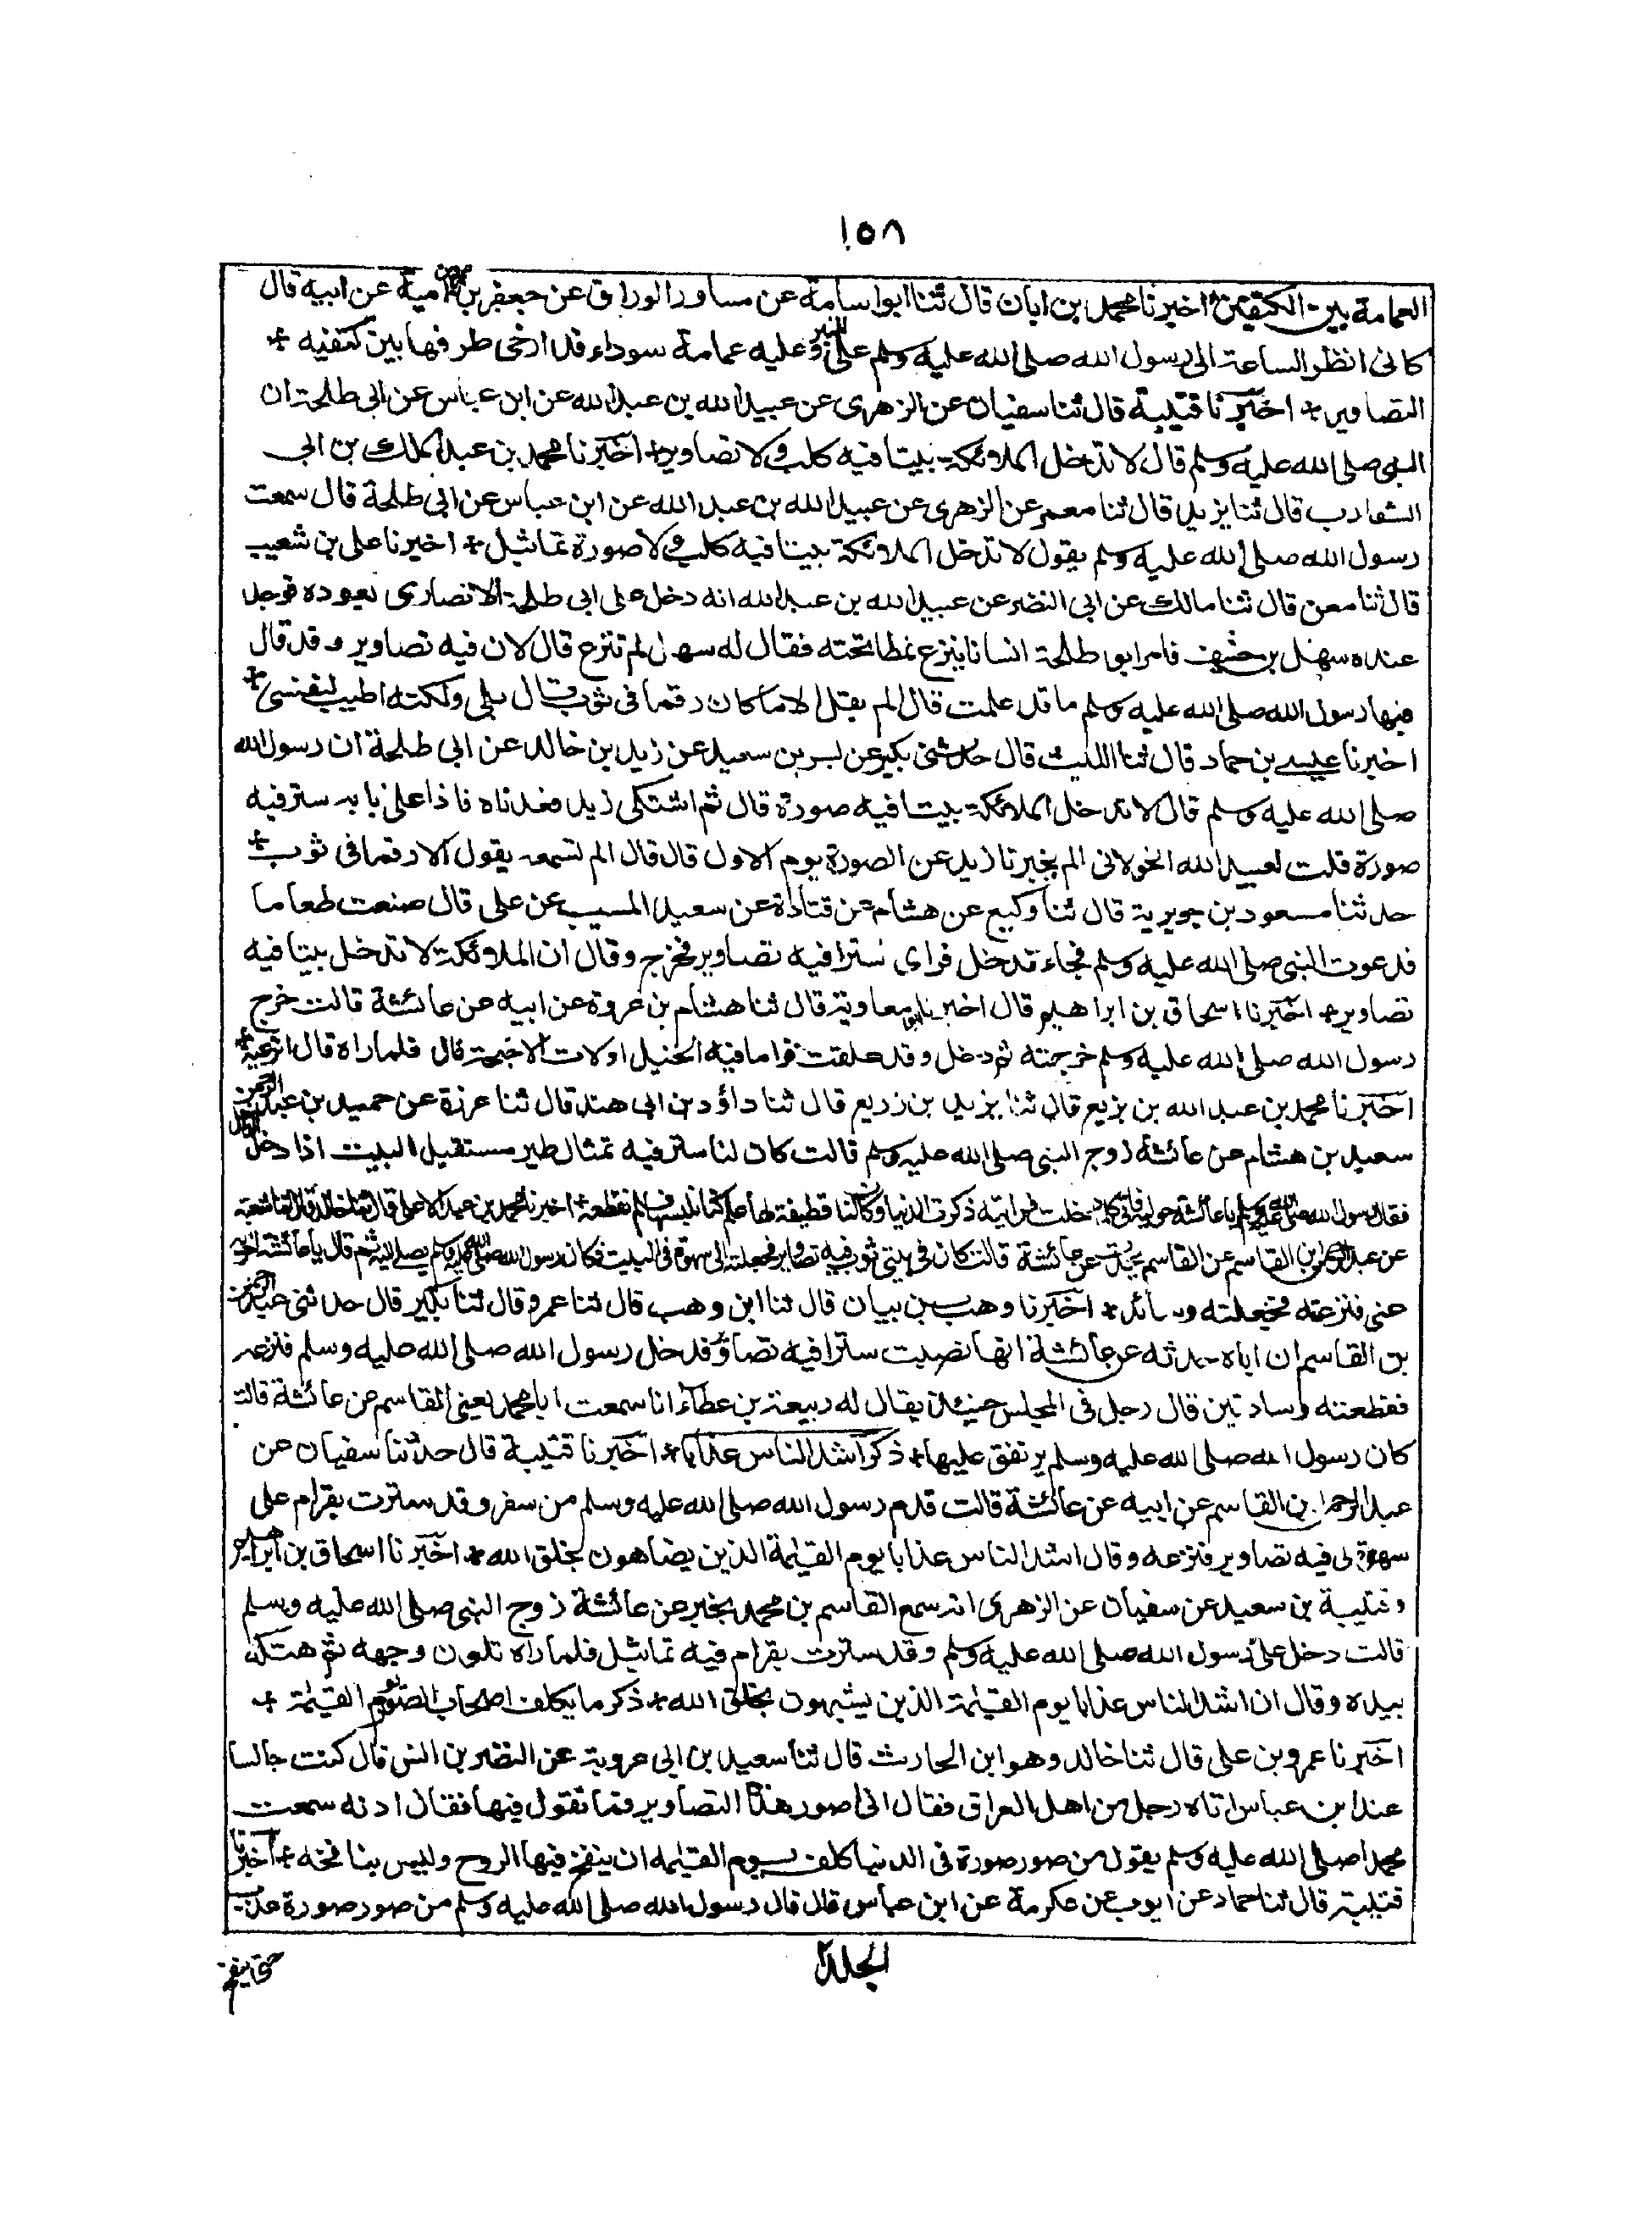 ١٥٨
العمامة بين الكتفين * اخبرنا محمد بن ابان قال ثنا ابو اسامة عن مساور الوراق عن جعفر بن عمرو بن امية عن ابيه قال
كانى انظر الساعة الى رسول الله صلى الله عليه وسلم على المنبر وعليه عمامة سوداء قد ارخى طرفها بين كتفيه *
التصاوير * اخبرنا قتيبة قال ثنا سفيان عن الزهرى عن عبيد الله بن عبد الله عن ابن عباس عن ابى طلحة ان
النبى صلى الله عليه وسلم قال لا تدخل الملائكة بيتا فيه كلب ولا تصاوير * اخبرنا محمد بن عبد الملك بن ابى
الشوارب قال ثنا يزيد قال ثنا معمر عن الزهرى عن عبيد الله بن عبد الله عن ابن عباس عن ابى طلحة قال سمعت
رسول الله صلى الله عليه وسلم يقول لا تدخل الملائكة بيتا فيه كلب ولا صورة تماثيل * اخبرنا على بن شعيب
قال ثنا معن قال ثنا مالك عن ابى النضر عن عبيد الله بن عبد الله انه دخل على ابى طلحة الانصارى يعوده فوجد
عنده سهل بن حنيف فامر ابو طلحة انسانا ينزع نمطا تحته فقال له سهل لم تنزع قال لان فيه تصاوير وقد قال
فيها رسول الله صلى الله عليه وسلم ما قد علمت قال الم يقل الا ما كان رقما فى ثوب قال بلى ولكنه اطيب لنفسى *
اخبرنا عيسى بن حماد قال ثنا الليث قال حدثنى بكير عن بسر بن سعيد عن زيد بن خالد عن ابى طلحة ان رسول الله
صلى الله عليه وسلم قال لا تدخل الملائكة بيتا فيه صورة قال ثم اشتكى زيد فعدناه فاذا على بابه ستر فيه
صورة قلت لعبيد الله الخولانى الم يخبرنا زيد عن الصورة يوم الاول قال قال الم تسمعه يقول الا رقما فى ثوب *
حدثنا مسعود بن جويرية قال ثنا وكيع عن هشام عن قتادة عن سعيد المسيب عن على قال صنعت طعاما
فدعوت النبى صلى الله عليه وسلم فجاء فدخل فراى سترا فيه تصاوير فخرج وقال ان الملائكة لا تدخل بيتا فيه
تصاوير * اخبرنا اسحاق بن ابراهيم قال اخبرنا ابو معاوية قال ثنا هشام بن عروة عن ابيه عن عائشة قالت خرج
رسول الله صلى الله عليه وسلم خرجته ثم دخل وقد علقت قراما فيه الخيل اولات الاجنحة قال فلما راه قال انزعيه *
اخبرنا محمد بن عبد الله بن بزيع قال ثنا يزيد بن زريع قال ثنا داؤد بن ابى هند قال ثنا عزرة عن حميد بن عبد الرحمن عن
سعيد بن هشام عن عائشة زوج النبى صلى الله عليه وسلم قالت كان لنا ستر فيه تمثال طير مستقبل البيت اذا دخل الداخل
فقال رسول الله صلى الله عليه وسلم يا عائشة حوليه فانى كلما دخلت فرايته ذكرت الدنيا وكان لنا قطيفة لها علم كنا نلبسها فلم نقطعه * اخبرنا محمد بن عبد الاعلى قال ثنا خالد قال ثنا شعبة
عن عبد الرحمن بن القاسم عن القاسم يحدث عن عائشة قالت كان فى بيتى ثوب فيه تصاوير فجعلته الى سهوة فى البيت فكان رسول الله صلى الله عليه وسلم يصلى اليه ثم قال يا عائشة اخريه
عنى فنزعته فجعلته وسائد * اخبرنا وهب بن بيان قال ثنا ابن وهب قال ثنا عمرو قال ثنا بكير قال حدثنى عبد الرحمن
بن القاسم ان اباه حدثه عن عائشة انها نصبت سترا فيه تصاوير فدخل رسول الله صلى الله عليه وسلم فنزعه
فقطعته وسادتين قال رجل فى المجلس حينئذ يقال له ربيعة بن عطاء انا سمعت ابا محمد يعنى القاسم عن عائشة قالت
كان رسول الله صلى الله عليه وسلم يرتفق عليها * ذكر اشد الناس عذابا * اخبرنا قتيبة قال حدثنا سفيان عن
عبد الرحمن بن القاسم عن ابيه عن عائشة قالت قدم رسول الله صلى الله عليه وسلم من سفر وقد سترت بقرام على
سهوة لى فيه تصاوير فنزعه وقال اشد الناس عذابا يوم القيمة الذين يضاهون بخلق الله * اخبرنا اسحاق بن ابراهيم
وقتيبة بن سعيد عن سفيان عن الزهرى انه سمع القاسم بن محمد يخبر عن عائشة زوج النبى صلى الله عليه وسلم
قالت دخل على رسول الله صلى الله عليه وسلم وقد سترت بقرام فيه تماثيل فلما راه تلون وجهه ثم هتكه
بيده وقال ان اشد الناس عذابا يوم القيمة الذين يشبهون بخلق الله * ذكر ما يكلف اصحاب الصور يوم القيمة *
اخبرنا عمرو بن على قال ثنا خالد وهو ابن الحارث قال ثنا سعيد بن ابى عروبة عن النضر بن انس قال كنت جالسا
عند ابن عباس اتاه رجل من اهل العراق فقال انى اصور هذه التصاوير فما تقول فيها فقال ادنه سمعت
محمدا صلى الله عليه وسلم يقول من صور صورة فى الدنيا كلف يوم القيمه ان ينفخ فيها الروح وليس بنافخه * اخبرنا
قتيبة قال ثنا حماد عن ايوب عن عكرمة عن ابن عباس قال قال رسول الله صلى الله عليه وسلم من صور صورة عذب
حتى ينفخ
الجلد٢